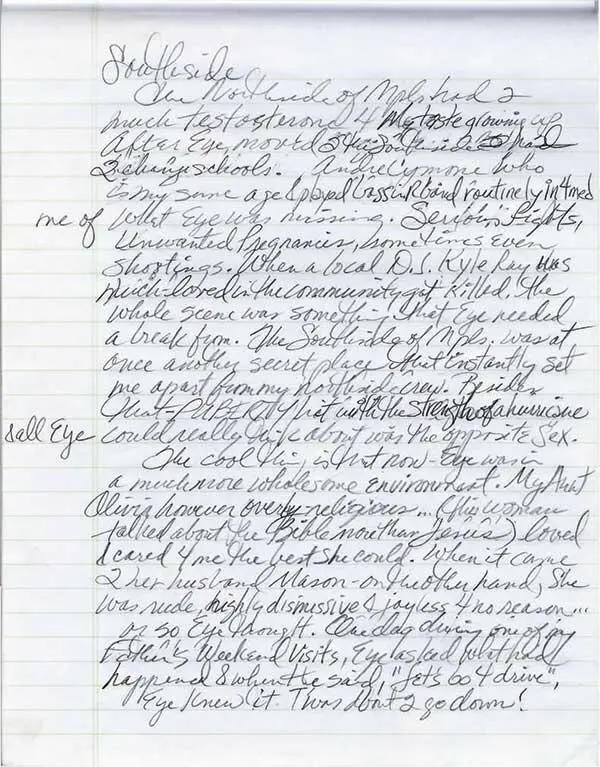 Southside
The Northside of Mpls had 2
much testosterone 4 My taste growing up
After Eye moved 2 the Southside & had
2 change schools. Andre Cymone who
is my same age & played bass in R band routinely in4med
me of what Eye was missing. Serious Fights,
Unwanted Pregnancies, sometimes even
shootings. When a local D.J. Kyle Ray who was
much-loved in the community got killed, the
whole scene was something that Eye needed
a break from. The Southside of Mpls. was at
once another secret place that instantly set
me apart from my northside crew. Besides
that - PUBERTY hit with the strength of a hurricane
& all Eye could really think about was the opposite Sex.
The cool thing is that now - Eye was in
a much more wholesome environment. My Aunt
Olivia however overly religious... (this woman
talked about the Bible more than Jesus) loved
& cared 4 me the best she could. When it came
2 her husband Mason - on the other hand, She
was rude, highly dismissive & joyless 4 no reason...
or so Eye thought. One day during one of my
Father's Weekend Visits, Eye asked what had
happened & when he said, "let's go 4 drive",
Eye knew it. Twas about 2 go down!